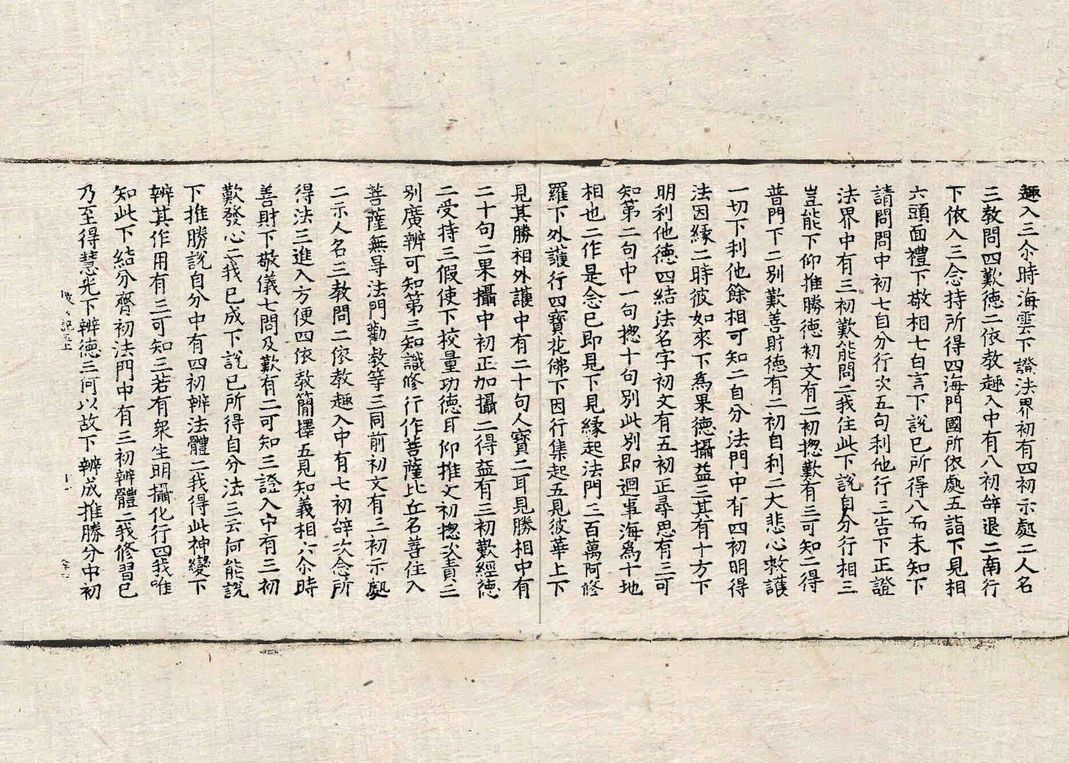 趣入三尒時海雲下證法界初有四初示處二人名
三教問四歎徳二依教趣入中有八初辞退二南行
下依入三念持所得四海門國所依處五詣下見相
六頭面禮下敬相七白言下說已所得八而未知下
請問問中初七自分行次五句利他行三告下正證
法界中有三初歎能問二我住此下說自分行相三
豈能下仰推勝徳初文有二初揔歎有三可知二得
普門下二別歎善財徳有二初自利二大悲心救護
一切下利他餘相可知二自分法門中有四初明得
法因緣二時彼如來下爲果徳攝益三其有十方下
明利他徳四結法名字初文有五初正尋思有三可
知第二句中一句揔十句別此別即迴事海爲十地
相也二作是念已即見下見緣起法門三百萬阿修
羅下外護行四寶花佛下因行集起五見彼華上下
見其勝相外護中有二十句人寶二耳見勝相中有
二十句二果攝中初正加攝二得益有三初歎經徳
二受持三假使下挍量功徳耳仰推文初揔次責三
別廣辨可知第三知識修行作菩薩比丘名善住入
菩薩無㝵法門勸教等三同前初文有三初示處
二示人名三教問二依教趣入中有七初辞次念所
得法三進入方便四依教簡擇五見知義相六尒時
善財下敬儀七問及歎有二可知三證入中有三初
歎發心二我已成下說已所得自分法三云何能說
下推勝說自分中有四初辨法體二我得此神變下
辨其作用有三可知三若有衆生明攝化行四我唯
知此下結分齊初法門中有三初辨體二我修習已
乃至得慧光下辨徳三何以故下辨成推勝分中初